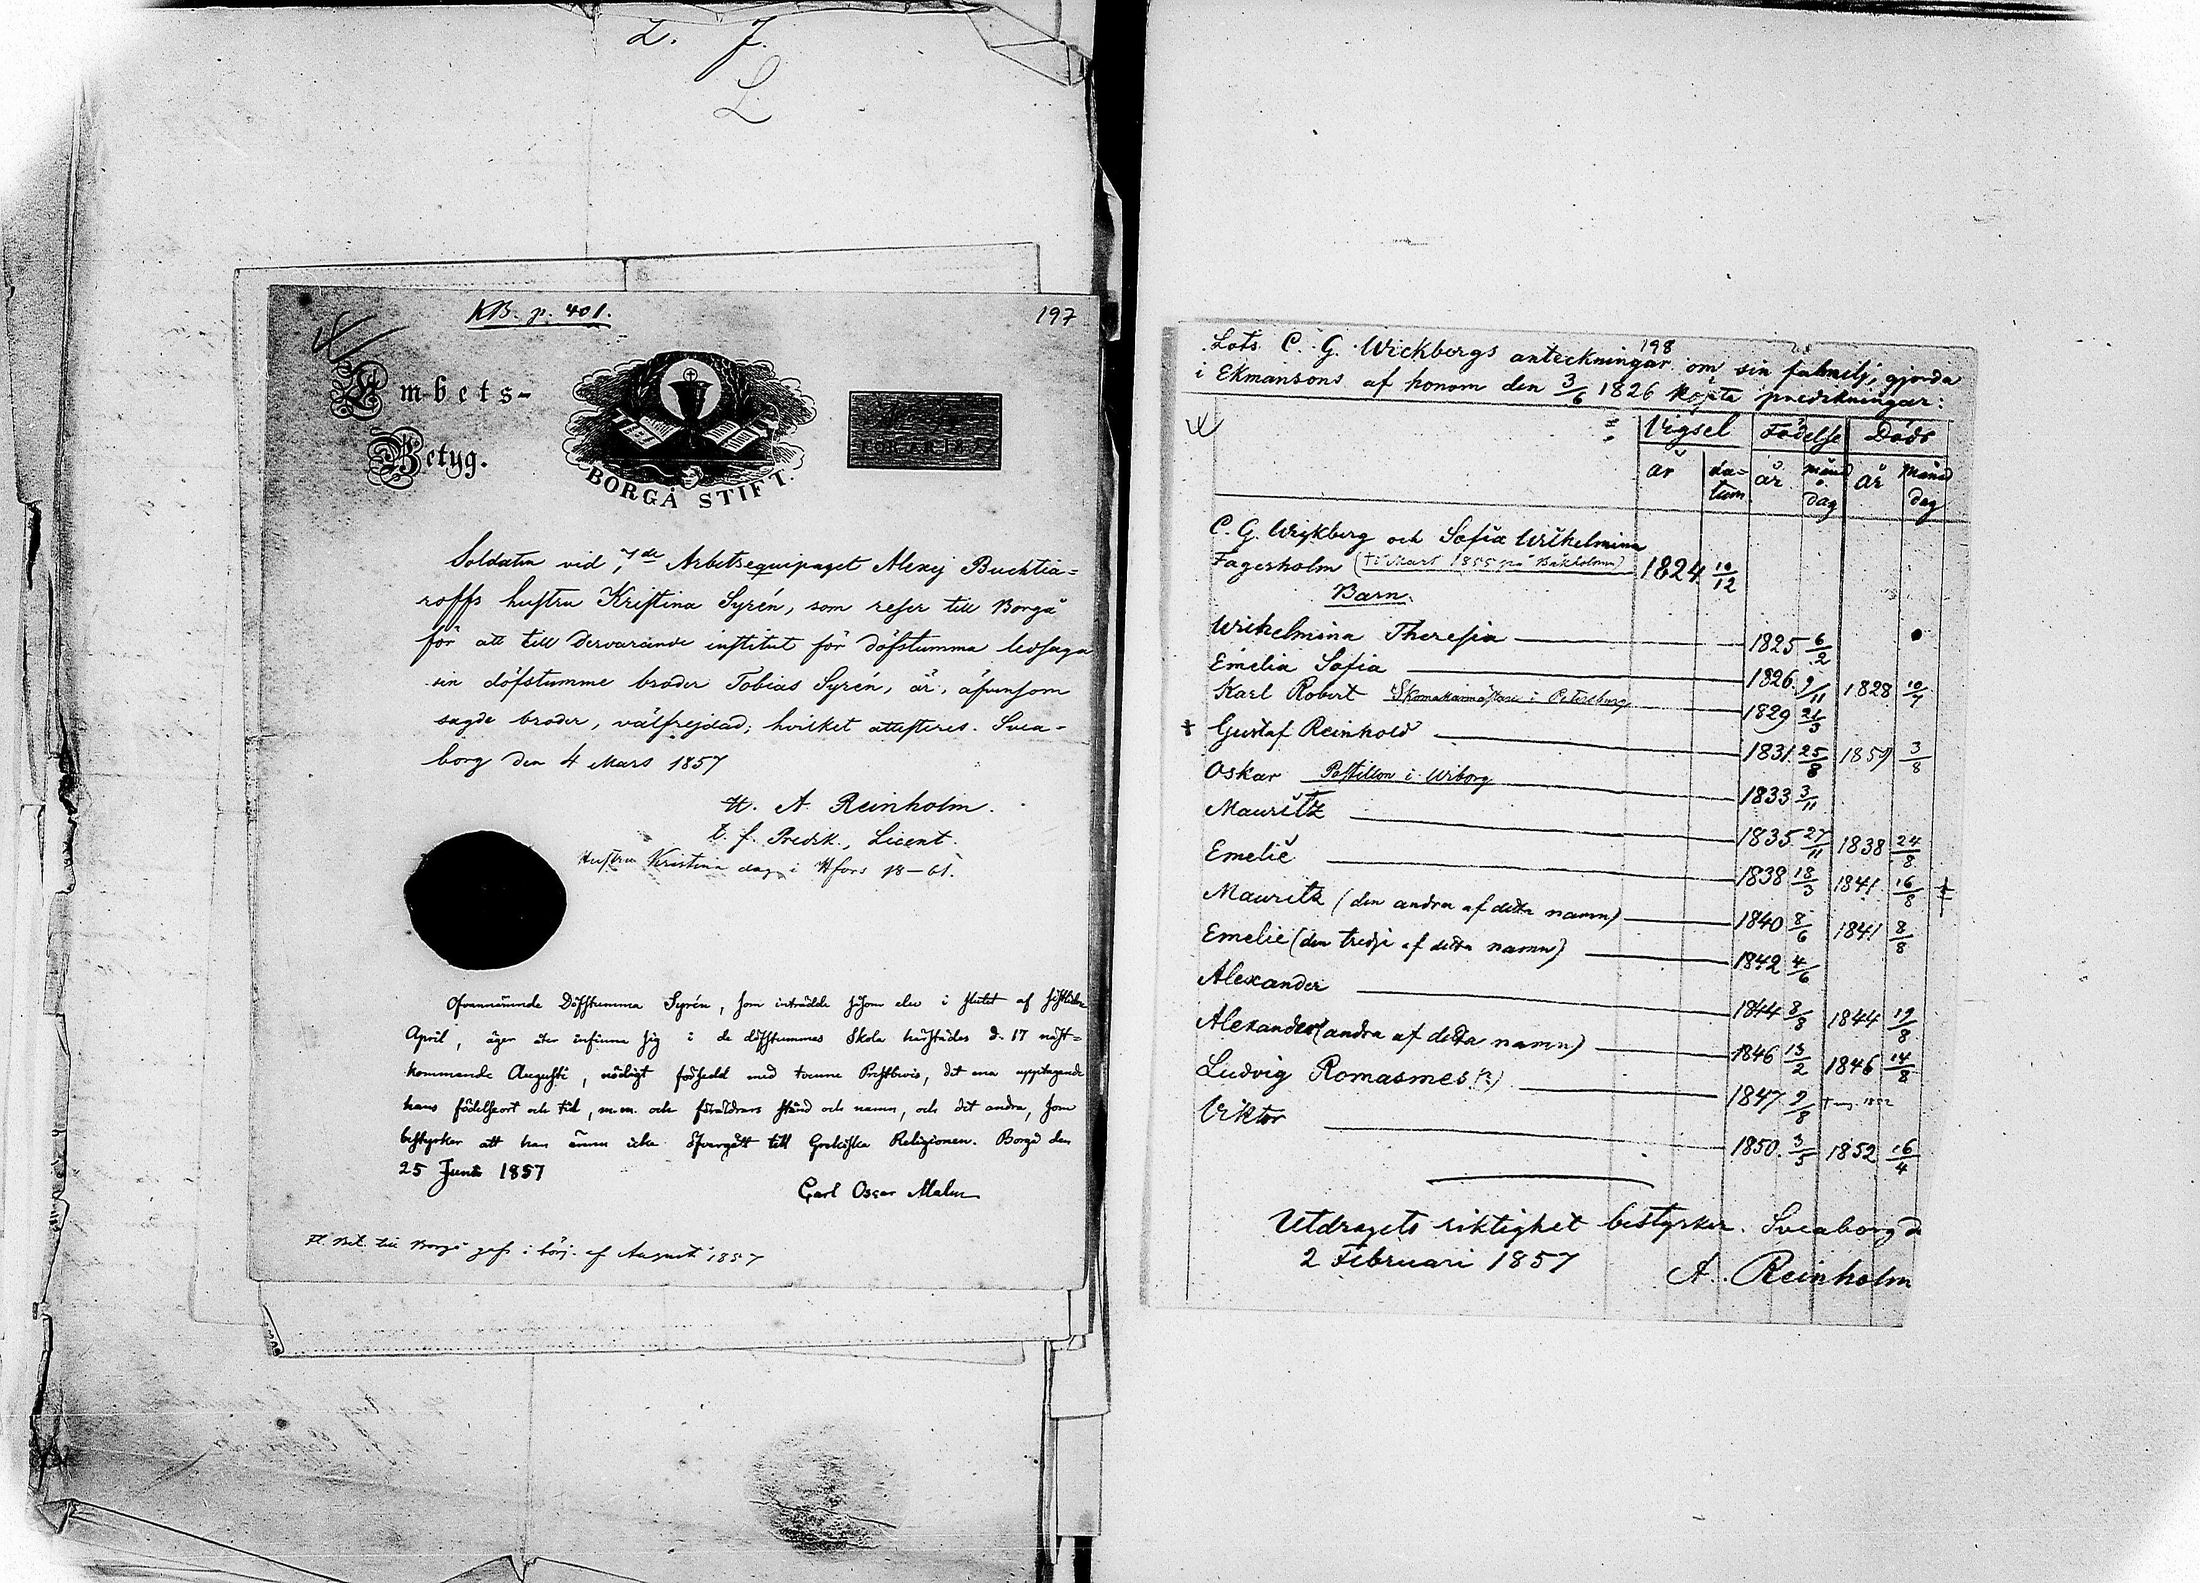 L. J.
L.
KB. p. 401.
197
Embets-
Betyg.
BORGÅ STIFT.
Soldaten vid 7de Arbetsequipaget Alexej Buchtia=
roffs hustru Kristina Syrén, som reser till Borgå
för att till dervarande institut för döfstumma ledsaga
sin döfstumme broder Tobias Syrén, är, äfvensom
sagde broder, välfrejdad; hvilket attesteras. Svea-
borg den 4 Mars 1857
H. A. Reinholm.
t. f. Predik., Licent.
Hustru Kristina dag i Hfors 18-61.
Ofvannämnde Döfstumma Syrén, som inträdde såsom elev i slutet af sistlidne
April, äger åter infinna sig i de döfstummas Skola härstädes d. 17 näst=
kommande Augusti, nödigt försedd med tvenne Prestbevis, det ena upptagande
hans födelseort och tid, m.m. och föräldrars stånd och namn, och det andra, som
bestyrker att han ännu icke öfvergått till Grekiska Religionen. Borgå den
25 Juni 1857
Carl Oscar Malm
Fl. Bet. till Borgå gafs i börj. af Augusti 1857
198
Lots C. G. Wickbergs anteckningar om sin familj, gjorda
i Ekmansons af honom den 3/6 1826 köpta predikningar:
Vigsel Födelse Döds
år da=tum år månd o. dag år månad dag
C. G. Wickberg och Sofia Wilhelmina
Fagerholm († i Mart 1855 på Bakholmen) 1824 10/12
Barn.
Wilhelmina Theresia 1825 6/2
Emelia Sofia 1826 9/11 1828 10/7
Karl Robert Skomakarmästare i Petersburg 1829 21/3
‡ Gustaf Reinhold 1831 25/8 1857 3/8
Oskar Postillon i Wiborg 1833 3/11
Mauritz 1835 27/11 1838 24/8
Emelie 1838 18/3 1841 16/8 ‡
Mauritz (den andra af detta namn) 1840 8/6 1841 8/8
Emelie (den tredje af detta namn) 1842 4/6
Alexander 1844 8/8 1844 19/8
Alexander (andra af detta namn) 1846 13/2 1846 14/8
Ludvig Romasmes (?) 1847 9/8
Viktor 1850 3/5 1852 16/4
Utdragets riktighet bestyrker. Sveaborg d
2 Februari 1857
A. Reinholm